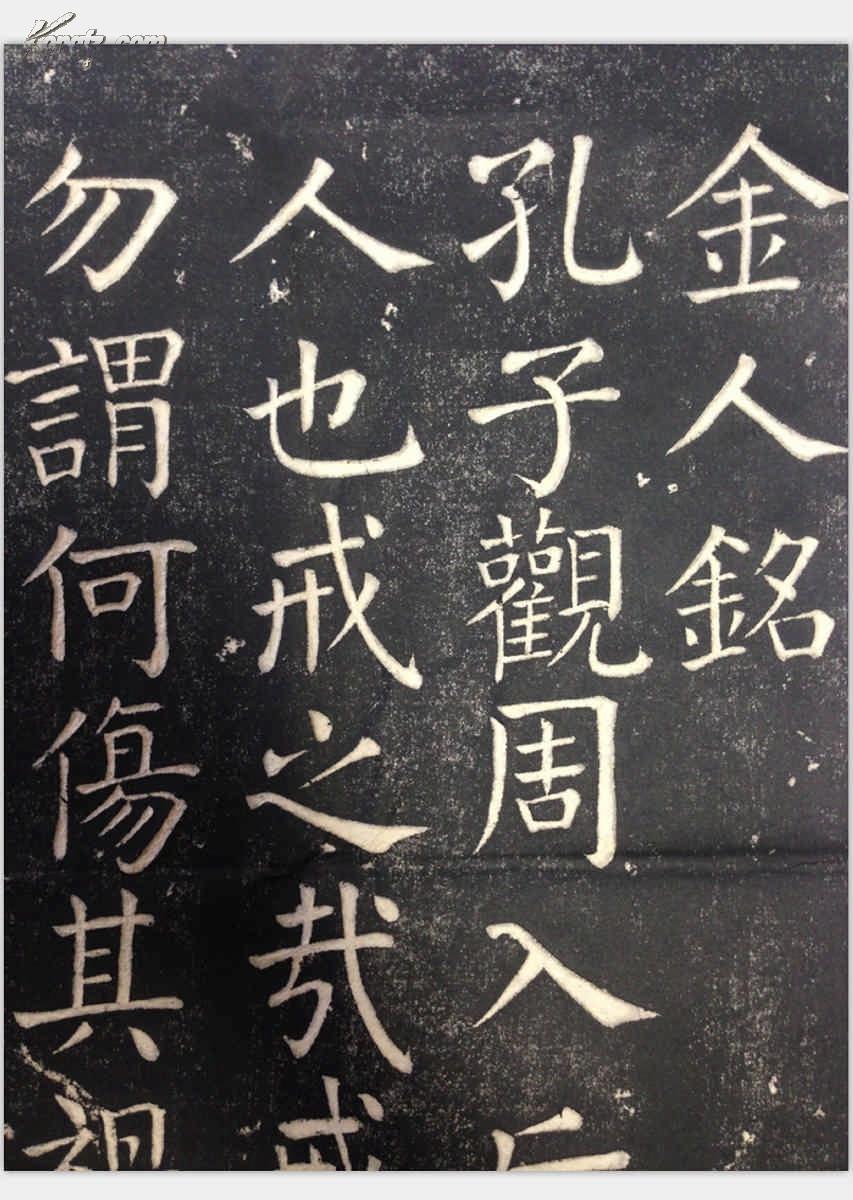 金人銘
孔子觀周入后
人也戒之哉戒
勿謂何傷其禍
Kongfz.com